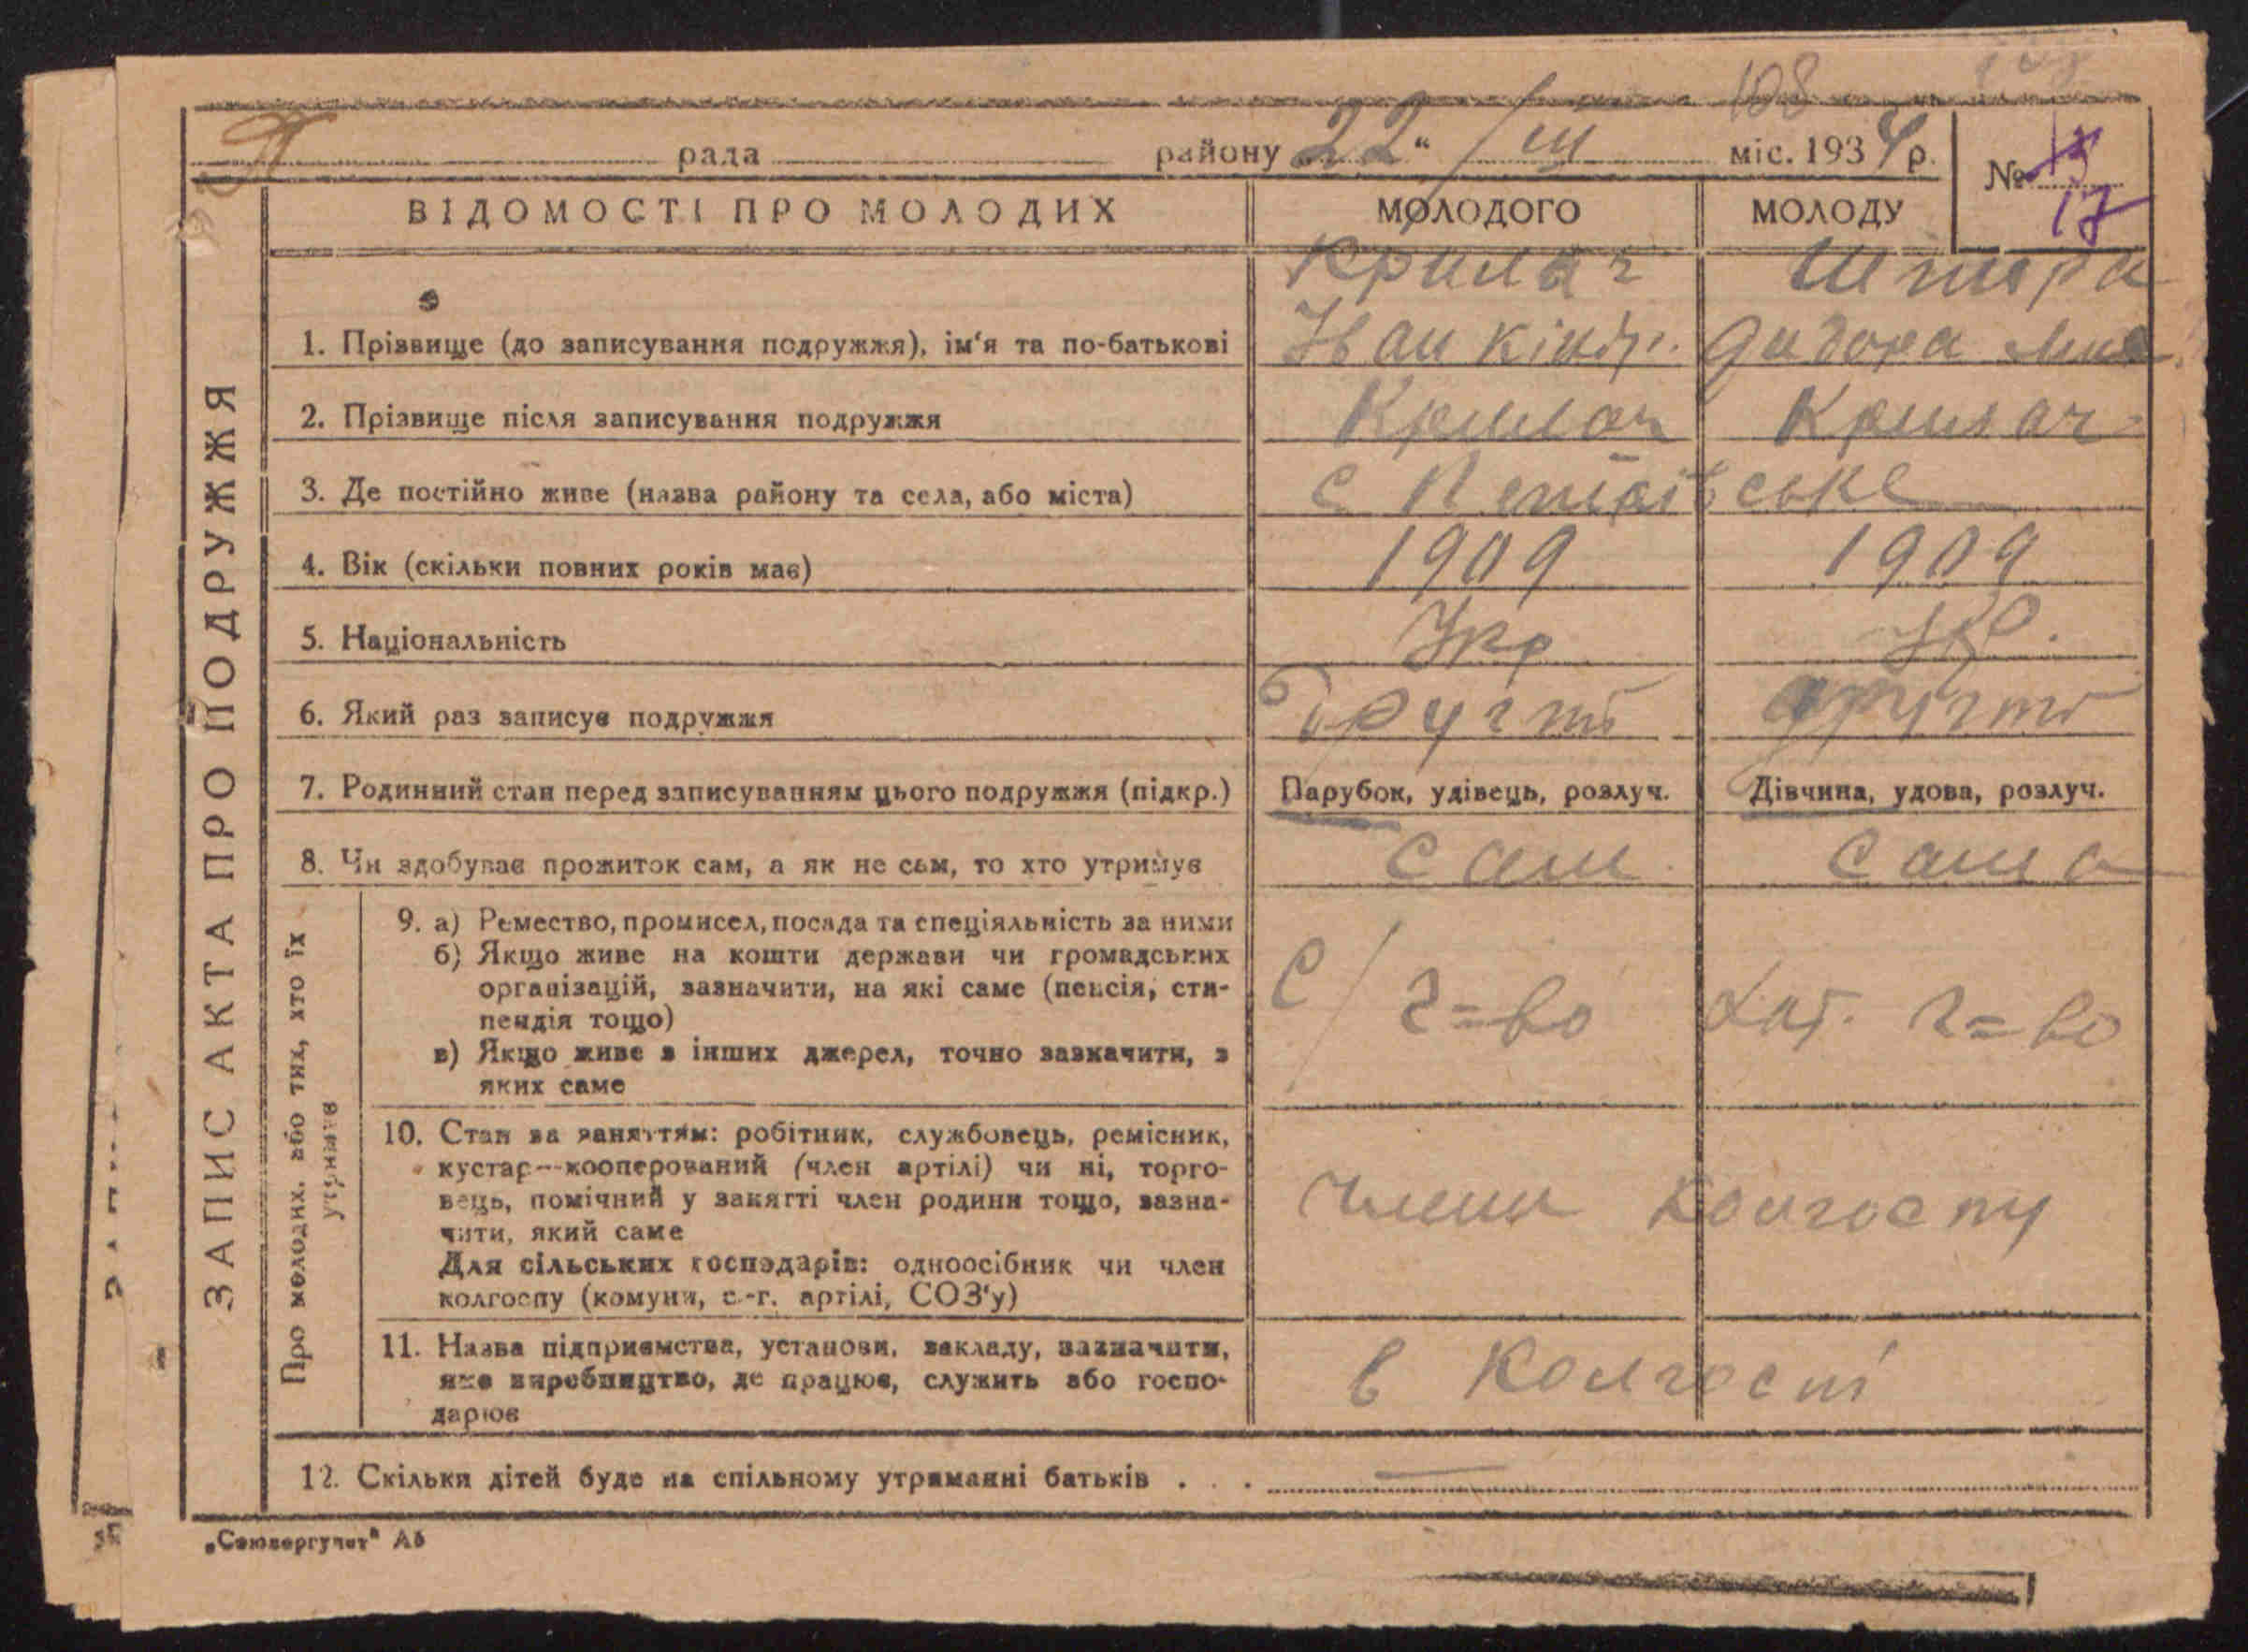 108
рада района 22 " / III міс. 1934 р.
№ 15
17
ВІДОМОСТІ ПРО МОЛОДИХ МОЛОДОГО МОЛОДУ
ЗАПИС АКТА ПРО ПОДРУЖЖЯ
Крилач
1. Прізвище (до записування подружжя), ім'я та по-батькові Іван Кіндр.
2. Прізвище після записування подружжя Крилач Крилач
3. Де постійно живе (назва району та села, або міста) с
4. Вік (скільки повних років має) 1909 1909
5. Національність Укр Укр.
6. Який раз записує подружжя
7. Родинний стан перед записуванням цього подружжя (підкр.) Парубок, удівець, розлуч. Дівчина, удова, розлуч.
8. Чи здобуває прожиток сам, а як не сам, то хто утримує сам сама
Про молодих, або тих, хто їх
утримує
9. а) Ремество, промисел, посада та спеціяльність за ними
б) Якщо живе на кошти держави чи громадських
організацій, зазначити, на які саме (пенсія, сти-
пендія тощо)
в) Якщо живе з інших джерел, точно зазначити, з
яких саме
с/г=во г=во
10. Стан за заняттям: робітник, службовець, ремісник,
кустар—кооперований (член артілі) чи ні, торго-
вець, помічний у занятті член родини тощо, зазна-
чити, який саме
Для сільських господарів: одноосібник чи член
колгоспу (комуни, с.-г. артілі, СОЗ'у)
члени колгоспу
11. Назва підприємства, установи, закладу, зазначити,
яке виробництво, де працює, служить або госпо-
дарює
в колгоспі
12. Скільки дітей буде на спільному утриманні батьків . . . —